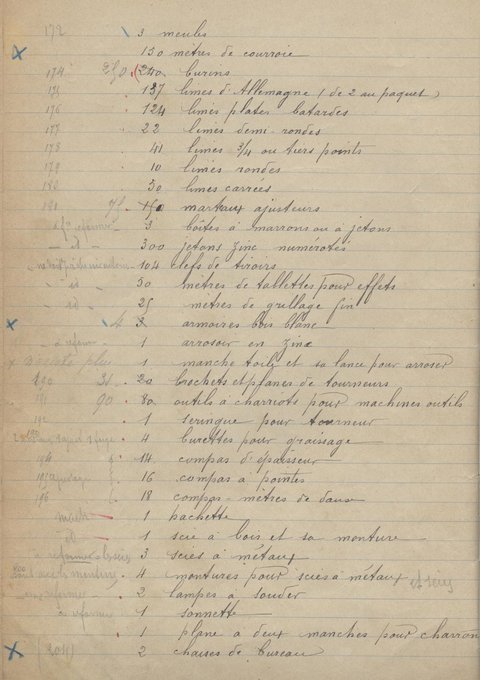 172 3 meules
150 metres de courroie
174 250 (240 burins
175 137 limes d'Allemagne (de 2 au paquet)
176 124 limes plates batardes
177 22 limes demi-rondes
178 41 limes 3/4 ou tiers points
179 10 limes rondes
180 50 limes carrées
181 martaux ajusteurs
3 boîtes à marrons ou à jetons
id 300 jetons zinc numérotés
104 clefs de tiroirs
id 50 mètres de tablettes pour effets
id 25 mètres de grillage fin
4 3 armoires bois blanc
1 arrosoir en zinc
1 manche toile et sa lance pour arroser
190 20 crochets et planes de tourneurs
191 90 80 outils à charriots pour machines outils
192 1 seringue pour tourneur
4 burettes pour graissage
194 14 compas d'épaisseur
16 compas à pointes
196 18 compas-mètres de
1 hachette
id 1 scie à bois et sa monture
à réformer 3 scies à métaux
4 montures pour scies à métaux
2 lampes à souder
à réformer 1 sonnette
1 plane à deux manches pour charron
2 chaises de bureau